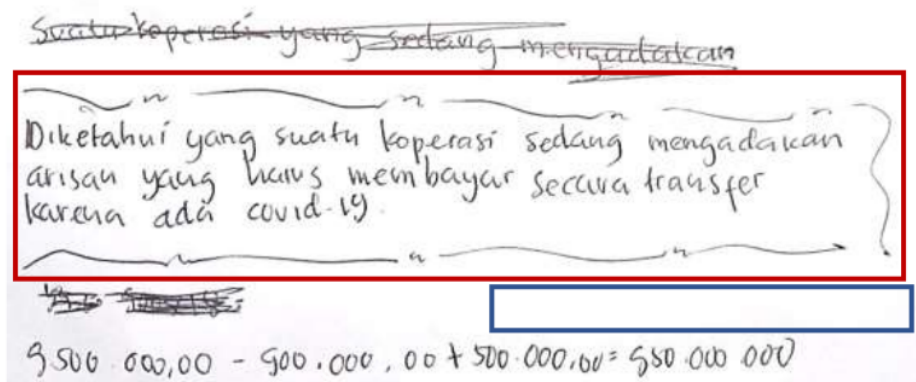 Suatu koperasi yang sedang mengadakan
Diketahui yang suatu koperasi sedang mengadakan
arisan yang harus membayar secara transfer
karena ada covid-19.
9500.000,00 - 900.000,00 + 500.000,00 = 950.000 000